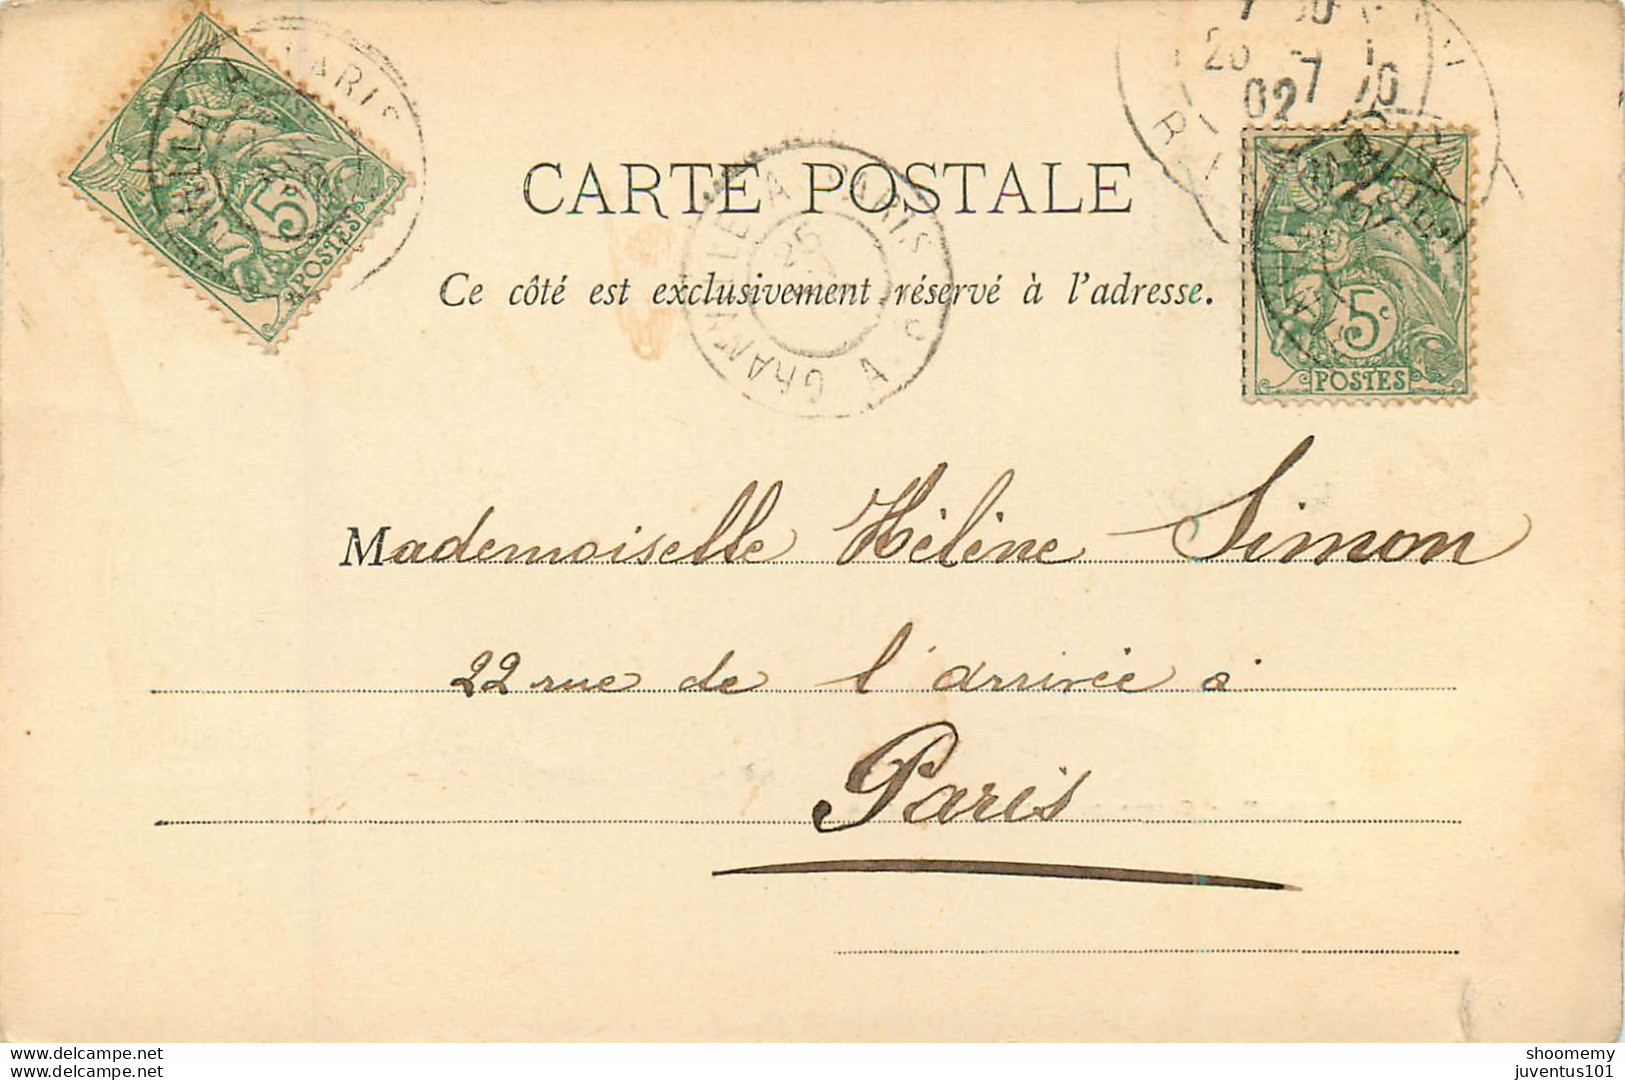 CARTE POSTALE
Ce côté est exclusivement réservé à l'adresse.
GRANVILLE A PARIS
25
GRANVILLE A PARIS
5c
POSTES
02
5c
POSTES
Mademoiselle Hélène Simon
22 rue de l'arrivée à
Paris
www.delcampe.net
www.delcampe.net
shoomemy
juventus101